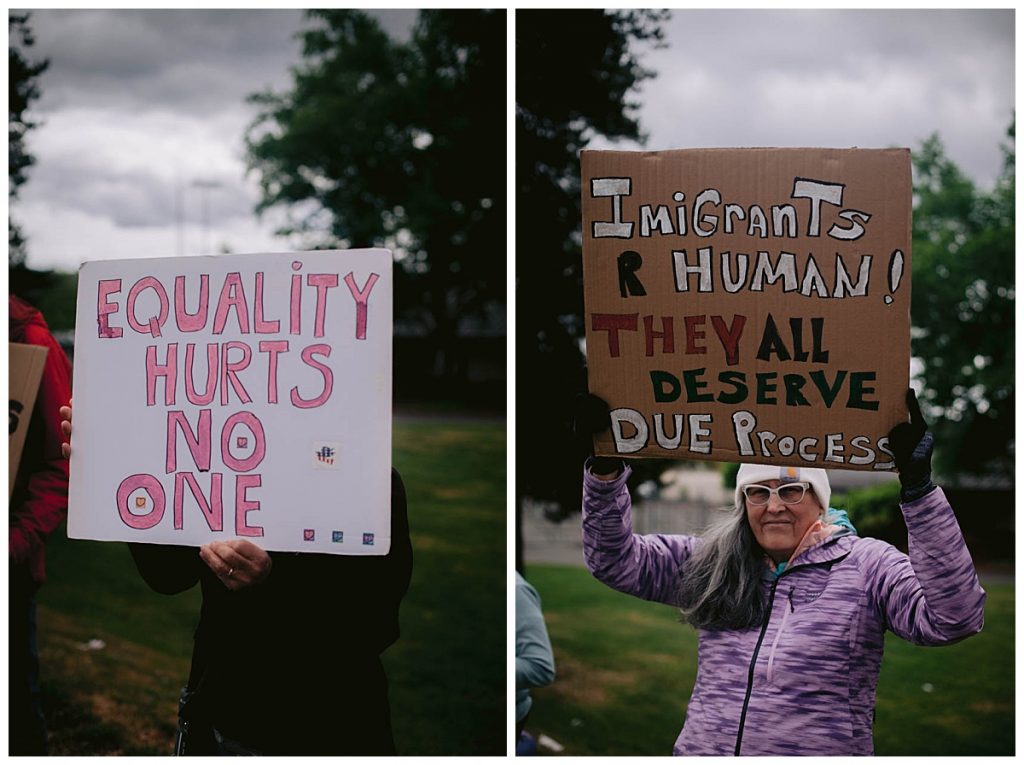 EQUALiTY
HURTS
NO
ONE
ImiGranTs
R HUMAN!
THEY ALL
DESERVE
DUE PROCESS